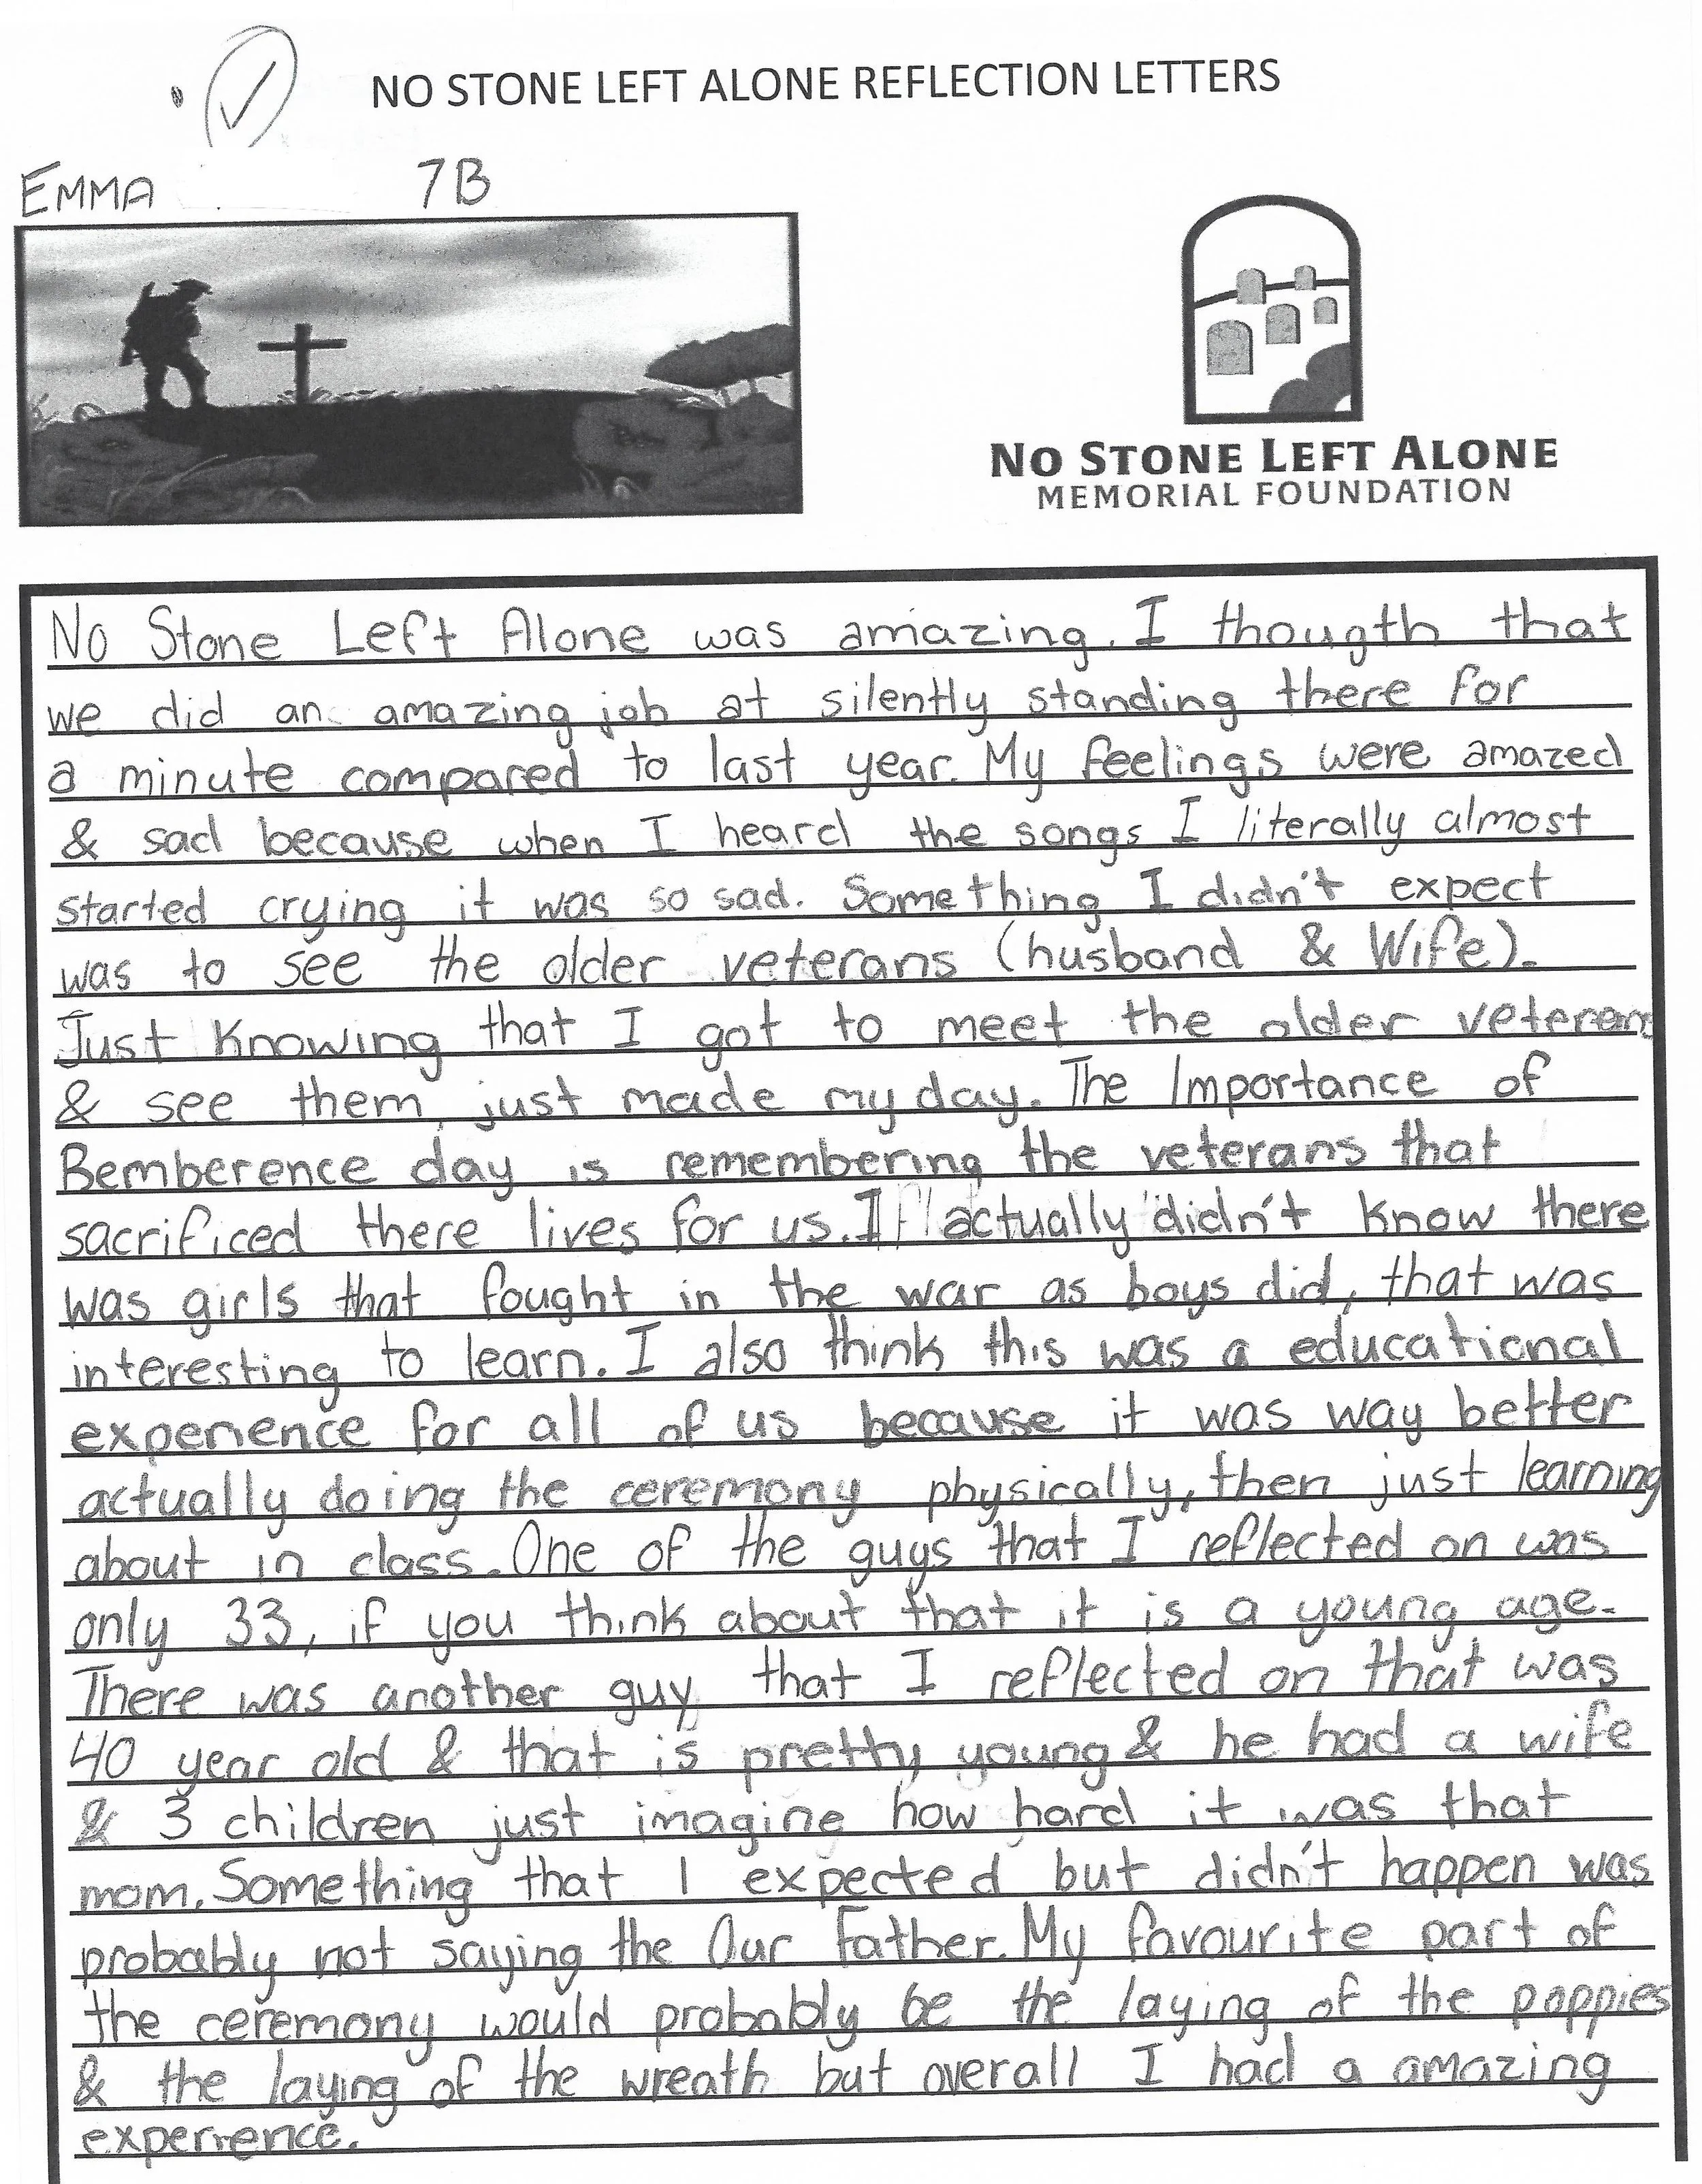 NO STONE LEFT ALONE REFLECTION LETTERS
EMMA 7B
NO STONE LEFT ALONE
MEMORIAL FOUNDATION
No Stone Left Alone was amazing. I thougth that
we did an amazing job at silently standing there for
a minute compared to last year. My feelings were amazed
& sad because when I heard the songs I literally almost
started crying it was so sad. Something I didn't expect
was to see the older veterans (husband & Wife).
Just Knowing that I got to meet the older veterans
& see them just made my day. The Importance of
Bemberence day is remembering the veterans that
sacrificed there lives for us. I actually didn't know there
was girls that fought in the war as boys did, that was
interesting to learn. I also think this was a educational
experience for all of us because it was way better
actually doing the ceremony physically, then just learning
about in class. One of the guys that I reflected on was
only 33, if you think about that it is a young age.
There was another guy that I reflected on that was
40 year old & that is pretty young & he had a wife
& 3 children just imagine how hard it was that
mom. Something that I expected but didn't happen was
probably not saying the Our Father. My favourite part of
the ceremony would probably be the laying of the poppies
& the laying of the wreath but overall I had a amazing
experience.